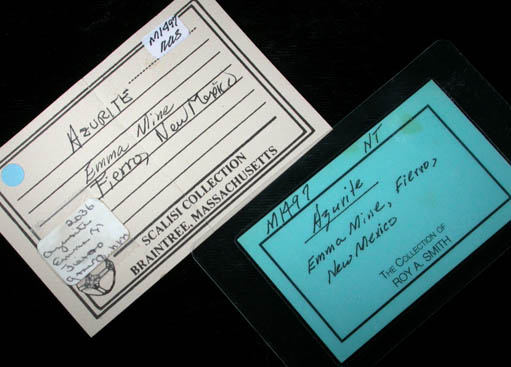 M1497
AZURITE
Emma Mine
Fierro, New Mexico
SCALISI COLLECTION
BRAINTREE, MASSACHUSETTS
2036
Azurite
Emma M
M1497 NT
Azurite
Emma Mine, Fierro,
New Mexico
THE COLLECTION OF
ROY A. SMITH